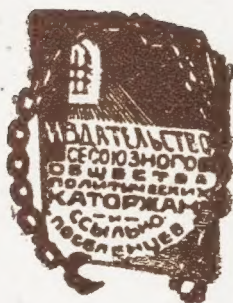 ИЗДАТЕЛЬСТВО
ВСЕСОЮЗНОГО
ОБЩЕСТВА
ПОЛИТИЧЕСКИХ
КАТОРЖАН
И
ССЫЛЬНО
ПОСЕЛЕНЦЕВ